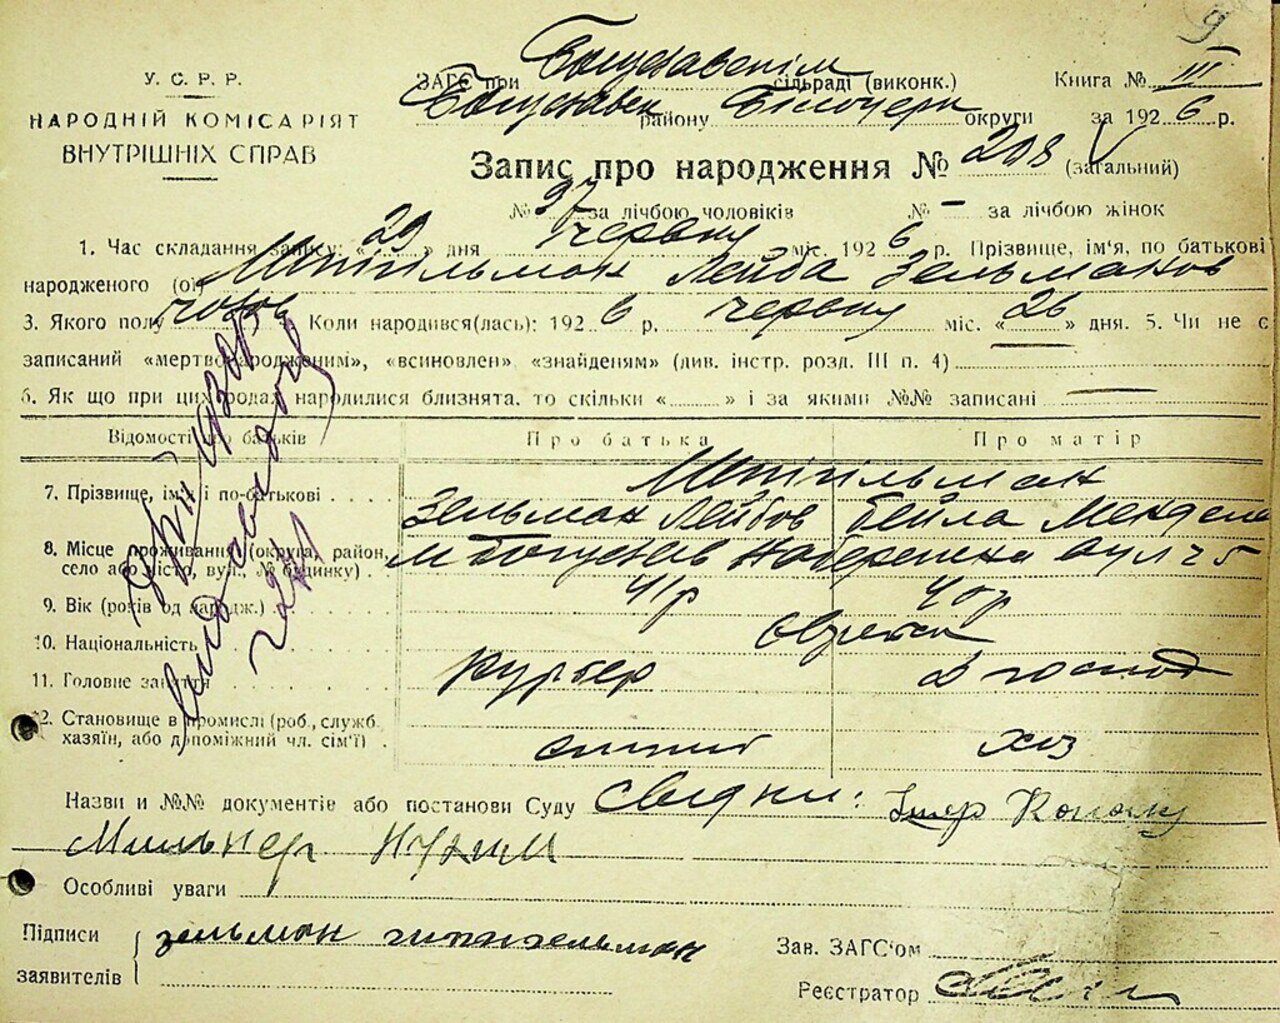 У. С. Р. Р.
НАРОДНІЙ КОМІСАРІЯТ
ВНУТРІШНІХ СПРАВ
9
ЗАГС при Богуславскім сільраді (виконк.) Книга № III
Богуславск району Білоцерк округи за 1926 р.
Запис про народження № 208 (загальний)
№ 97 за лічбою чоловіків № — за лічбою жінок
1. Час складання запису: «29» дня червня міс. 1926 р. Прізвище, ім'я, по батькові
народженого (ої) Штільман Лейба Зельманов
3. Якого полу чолов Коли народився(лась): 1926 р. червня міс. «26» дня. 5. Чи не є
записаний «мертвонародженим», «всиновлен» «знайденям» (див. інстр. розд. III п. 4)
6. Як що при цих родах народилися близнята. то скільки «......» і за якими №№ записані —
Відомості про батьків Про батька Про матір
7. Прізвище, ім'я і по-батькові Штільман
Зельман Лейбов Бейла Мендел
8. Місце проживання (округа, район, село або місто, вул., № будинку) м Богуслав Набережна вул ч 5
9. Вік (років од народж.) 41 р 40 р
10. Національність евреи
11. Головне заняття курьер д господ
12. Становище в промислі (роб., служб. хазяїн, або допоміжний чл. сім'ї) хоз
Назви и №№ документів або постанови Суду Свідки:
Мильнер Нухим
Особливі уваги
Підписи заявителів зельман
Зав. ЗАГС'ом
Реєстратор